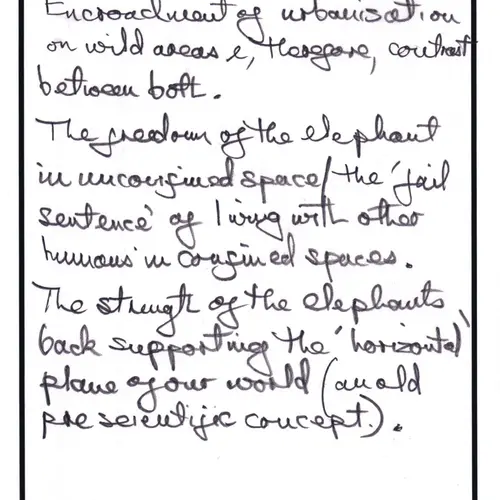 Encroachment of urbanisation
on wild areas &, therefore, contrast
between both.
The freedom of the elephant
in unconfined space/the 'jail
sentence' of living with other
'humans' in confined spaces.
The strength of the elephants
back supporting the 'horizontal'
plane of our world (an old
pre scientific concept).